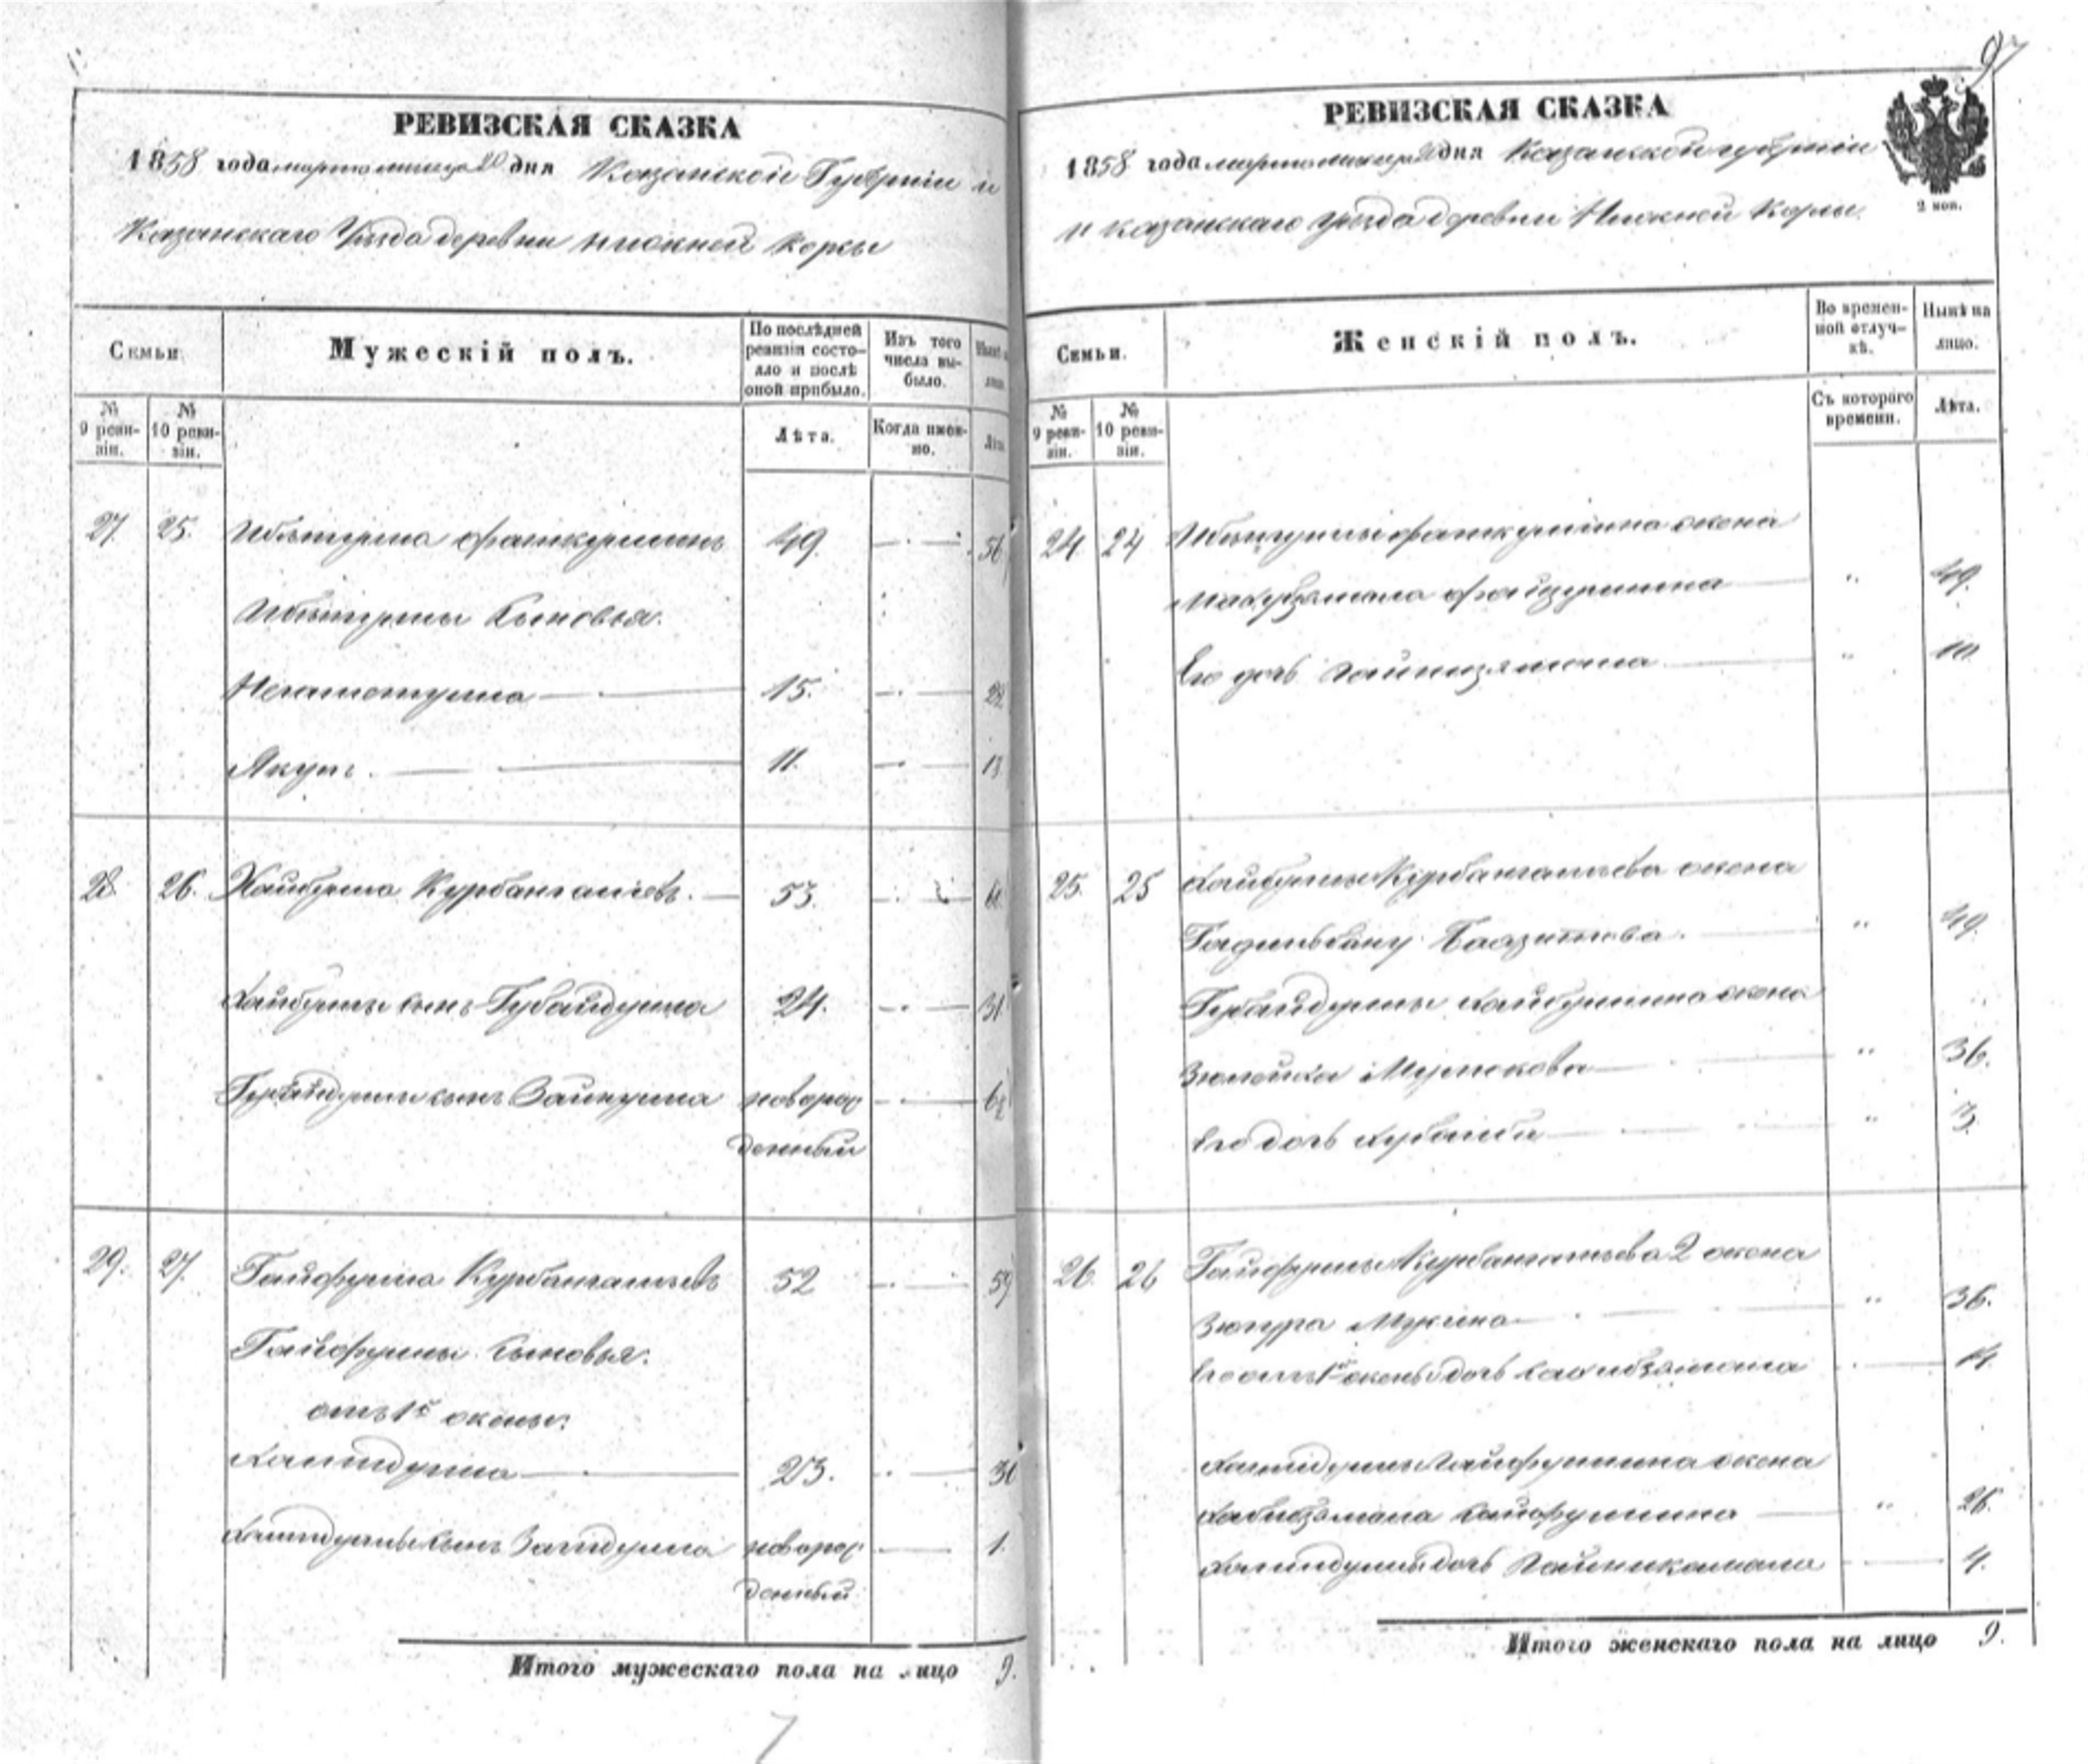 РЕВИЗСКАЯ СКАЗКА
1858 года марта месяца 20 дня Казанской Губерніи и
Казанскаго Уѣзда деревни Нижней Корсы
Семьи.
Мужескій полъ.
По послѣдней ревизіи состояло и послѣ оной прибыло.
Изъ того числа выбыло.
№ 9 ревизіи.
№ 10 ревизіи.
Лѣта.
Когда именно.
27. 25. Ибятулла Фаткуллинъ 49. 56
Ибятуллы сыновья.
Негаметулла 15. 22
Якупъ. 11.
28. 26. Хайбулла Курбангалѣевъ. 53.
Хайбуллы сынъ Губайдулла 24. 31
Губайдуллы сынъ Зайнулла новорож
денный
29. 27. Гайфулла Курбангалѣевъ 52 59
Гайфуллы сыновья.
отъ 1й жены:
Хамидулла 23. 30
Хамидуллы сынъ Загидулла новорож
денный 1.
Итого мужескаго пола на лицо 9.
7
97
РЕВИЗСКАЯ СКАЗКА
1858 года марта месяца 20 дня Казанской губерніи
и Казанскаго уѣзда деревни Нижней Корсы.
2 коп.
Семьи.
Женскій полъ.
Во временной отлучкѣ.
Нынѣ на лицо.
№ 9 ревизіи.
№ 10 ревизіи.
Съ котораго времени.
Лѣта.
24 24 Ибятуллы Фаткуллина жена
Файзуллина 49.
Его дочь 10
25. 25 Хайбуллы Курбангалѣева жена
Баязитова. 49.
Губайдуллы Хайбуллина жена
Зюлейха 36.
Его дочь 3.
26. 26 Гайфуллы Курбангалѣева 2 жена
Зюгура 36.
Его отъ 1й жены дочь 14.
Хамидуллы Гайфуллина жена
26.
Хамидуллы дочь 4.
Итого женскаго пола на лицо 9.